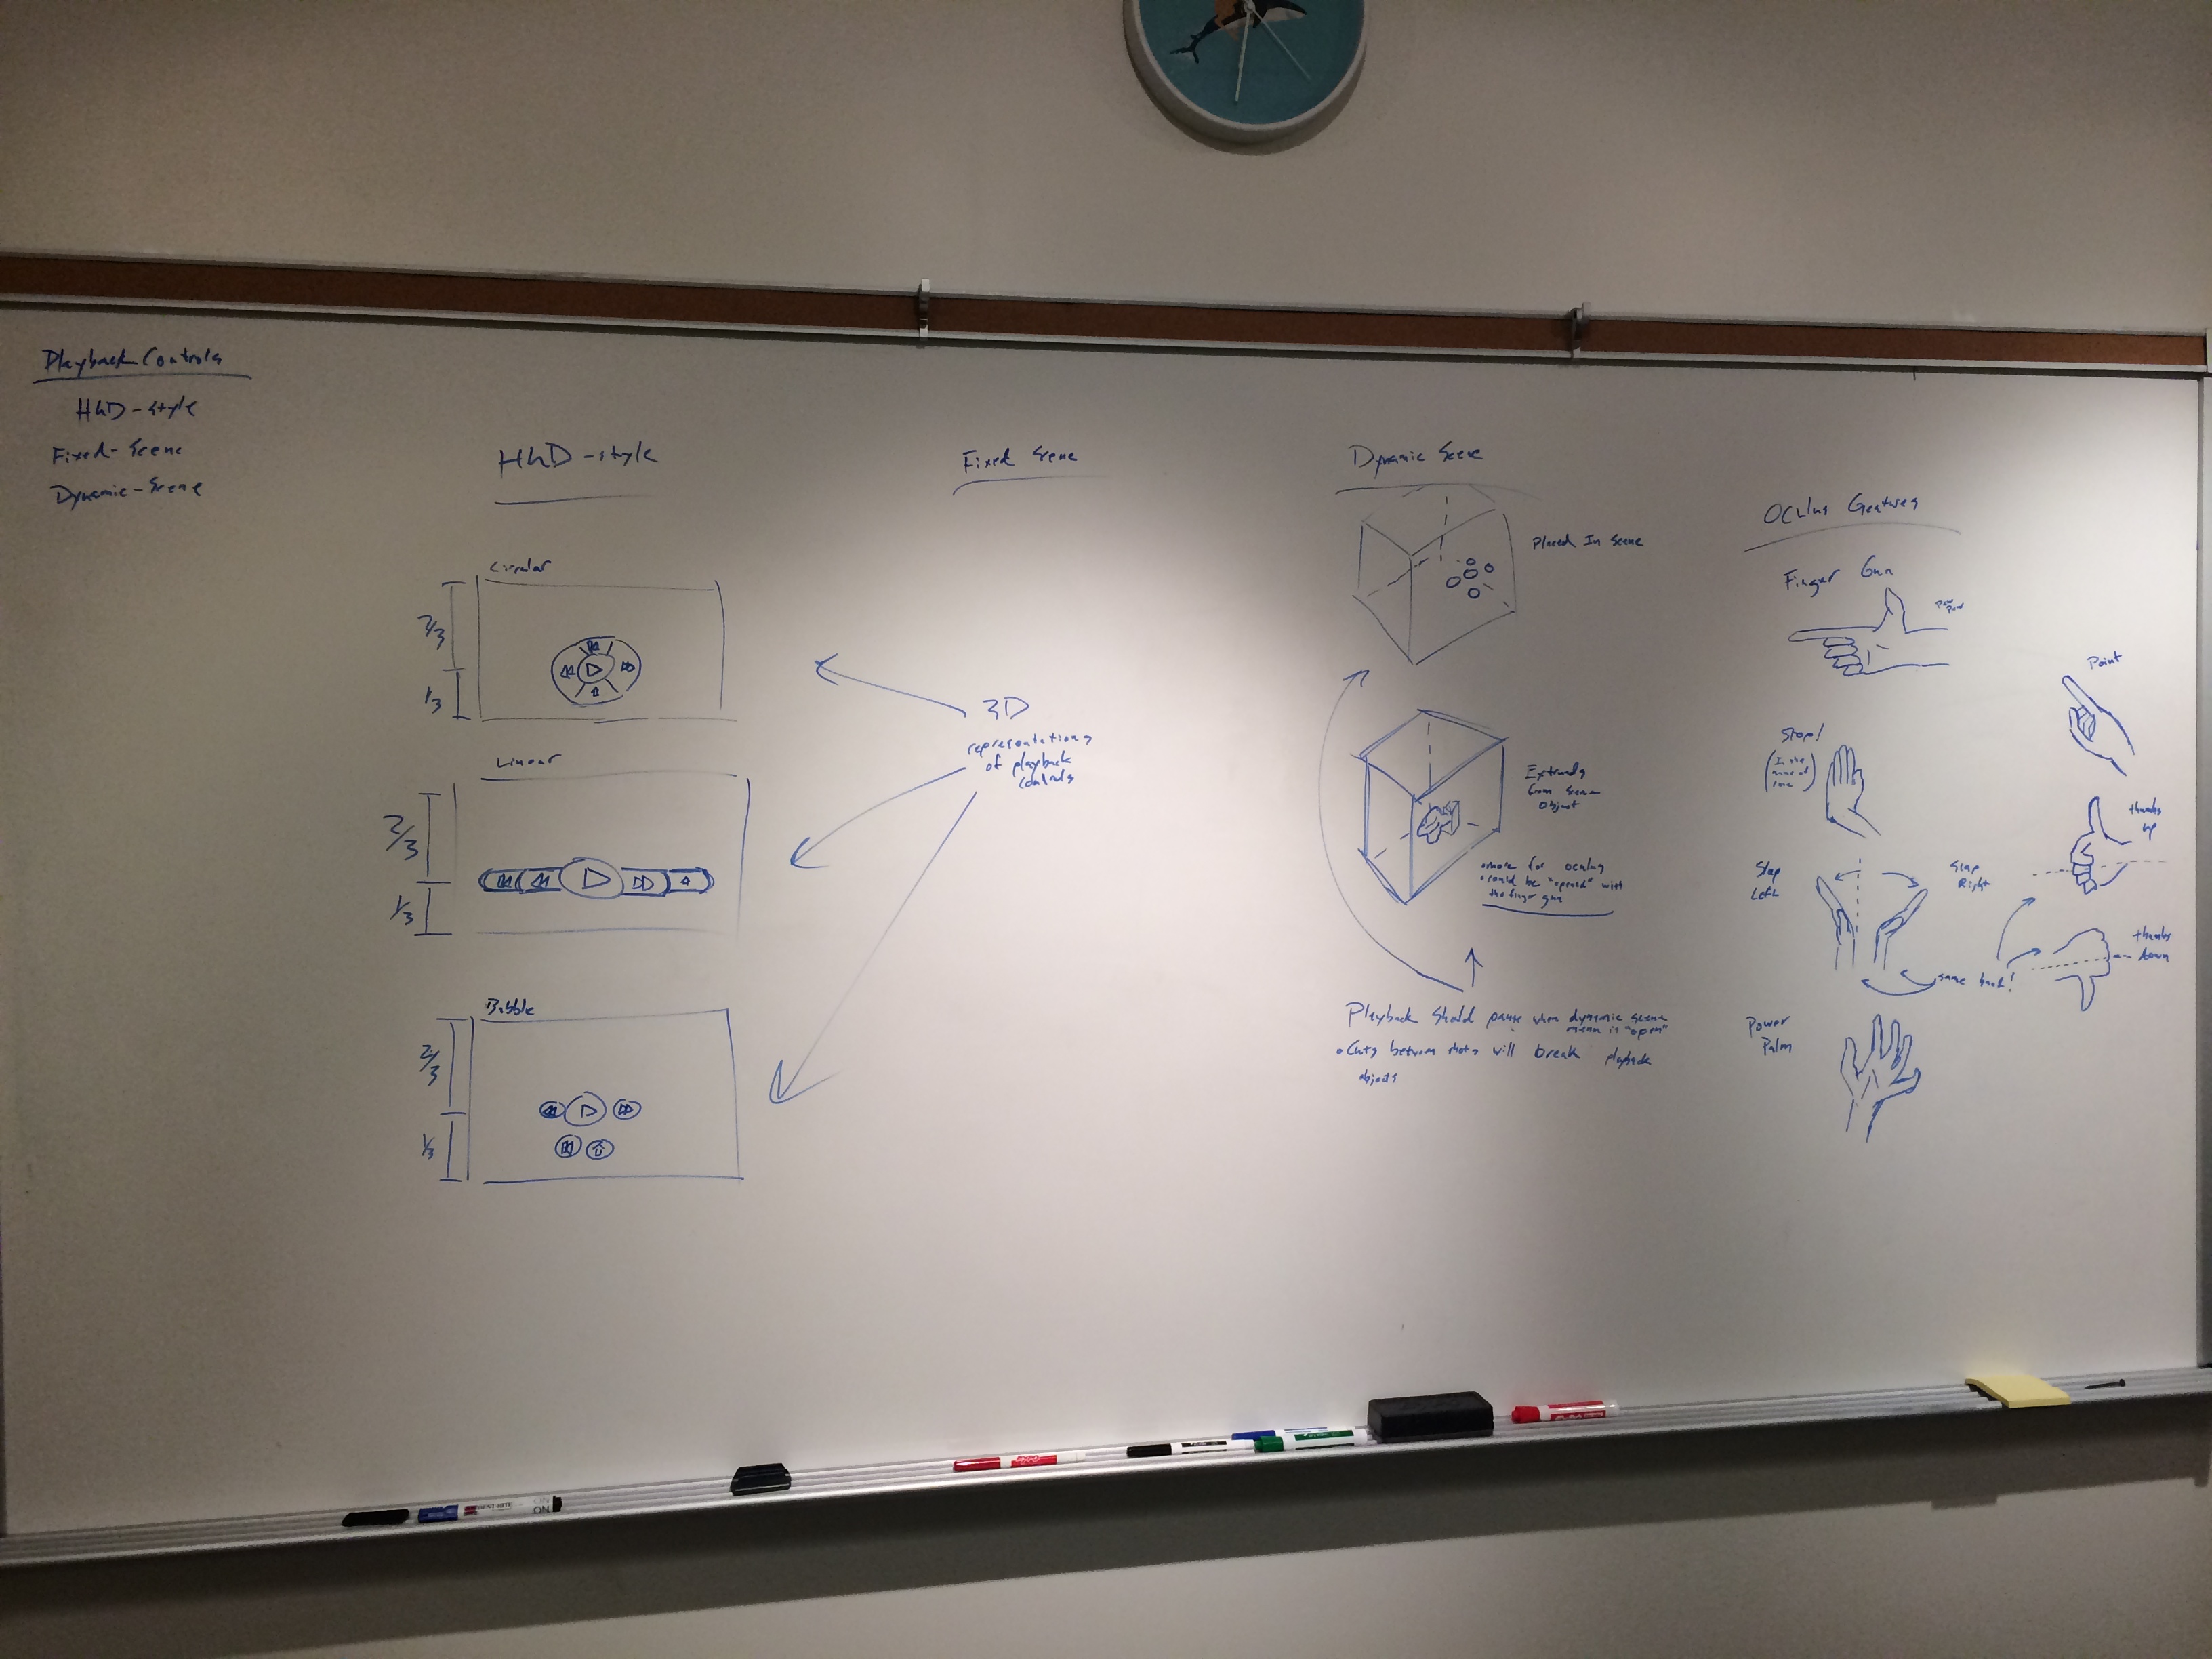 Playback Controls
HUD-style
Fixed-Scene
Dynamic-Scene
HUD-style
Circular
2/3
1/3
Linear
2/3
1/3
Bubble
2/3
1/3
Fixed Scene
3D
representations
of playback
controls
Dynamic Scene
Placed In Scene
Extrudes
from scene
object
more for oculus
could be "opened" with
the finger gun
Playback should pause when dynamic scene
menu is "open"
Cuts between shots will break playback
objects
Oculus Gestures
Finger Gun
Pew
Pew
Point
Stop!
(In the
name of
love)
thumbs
up
Slap
Left
Slap
Right
thumbs
down
same hand!
Power
Palm